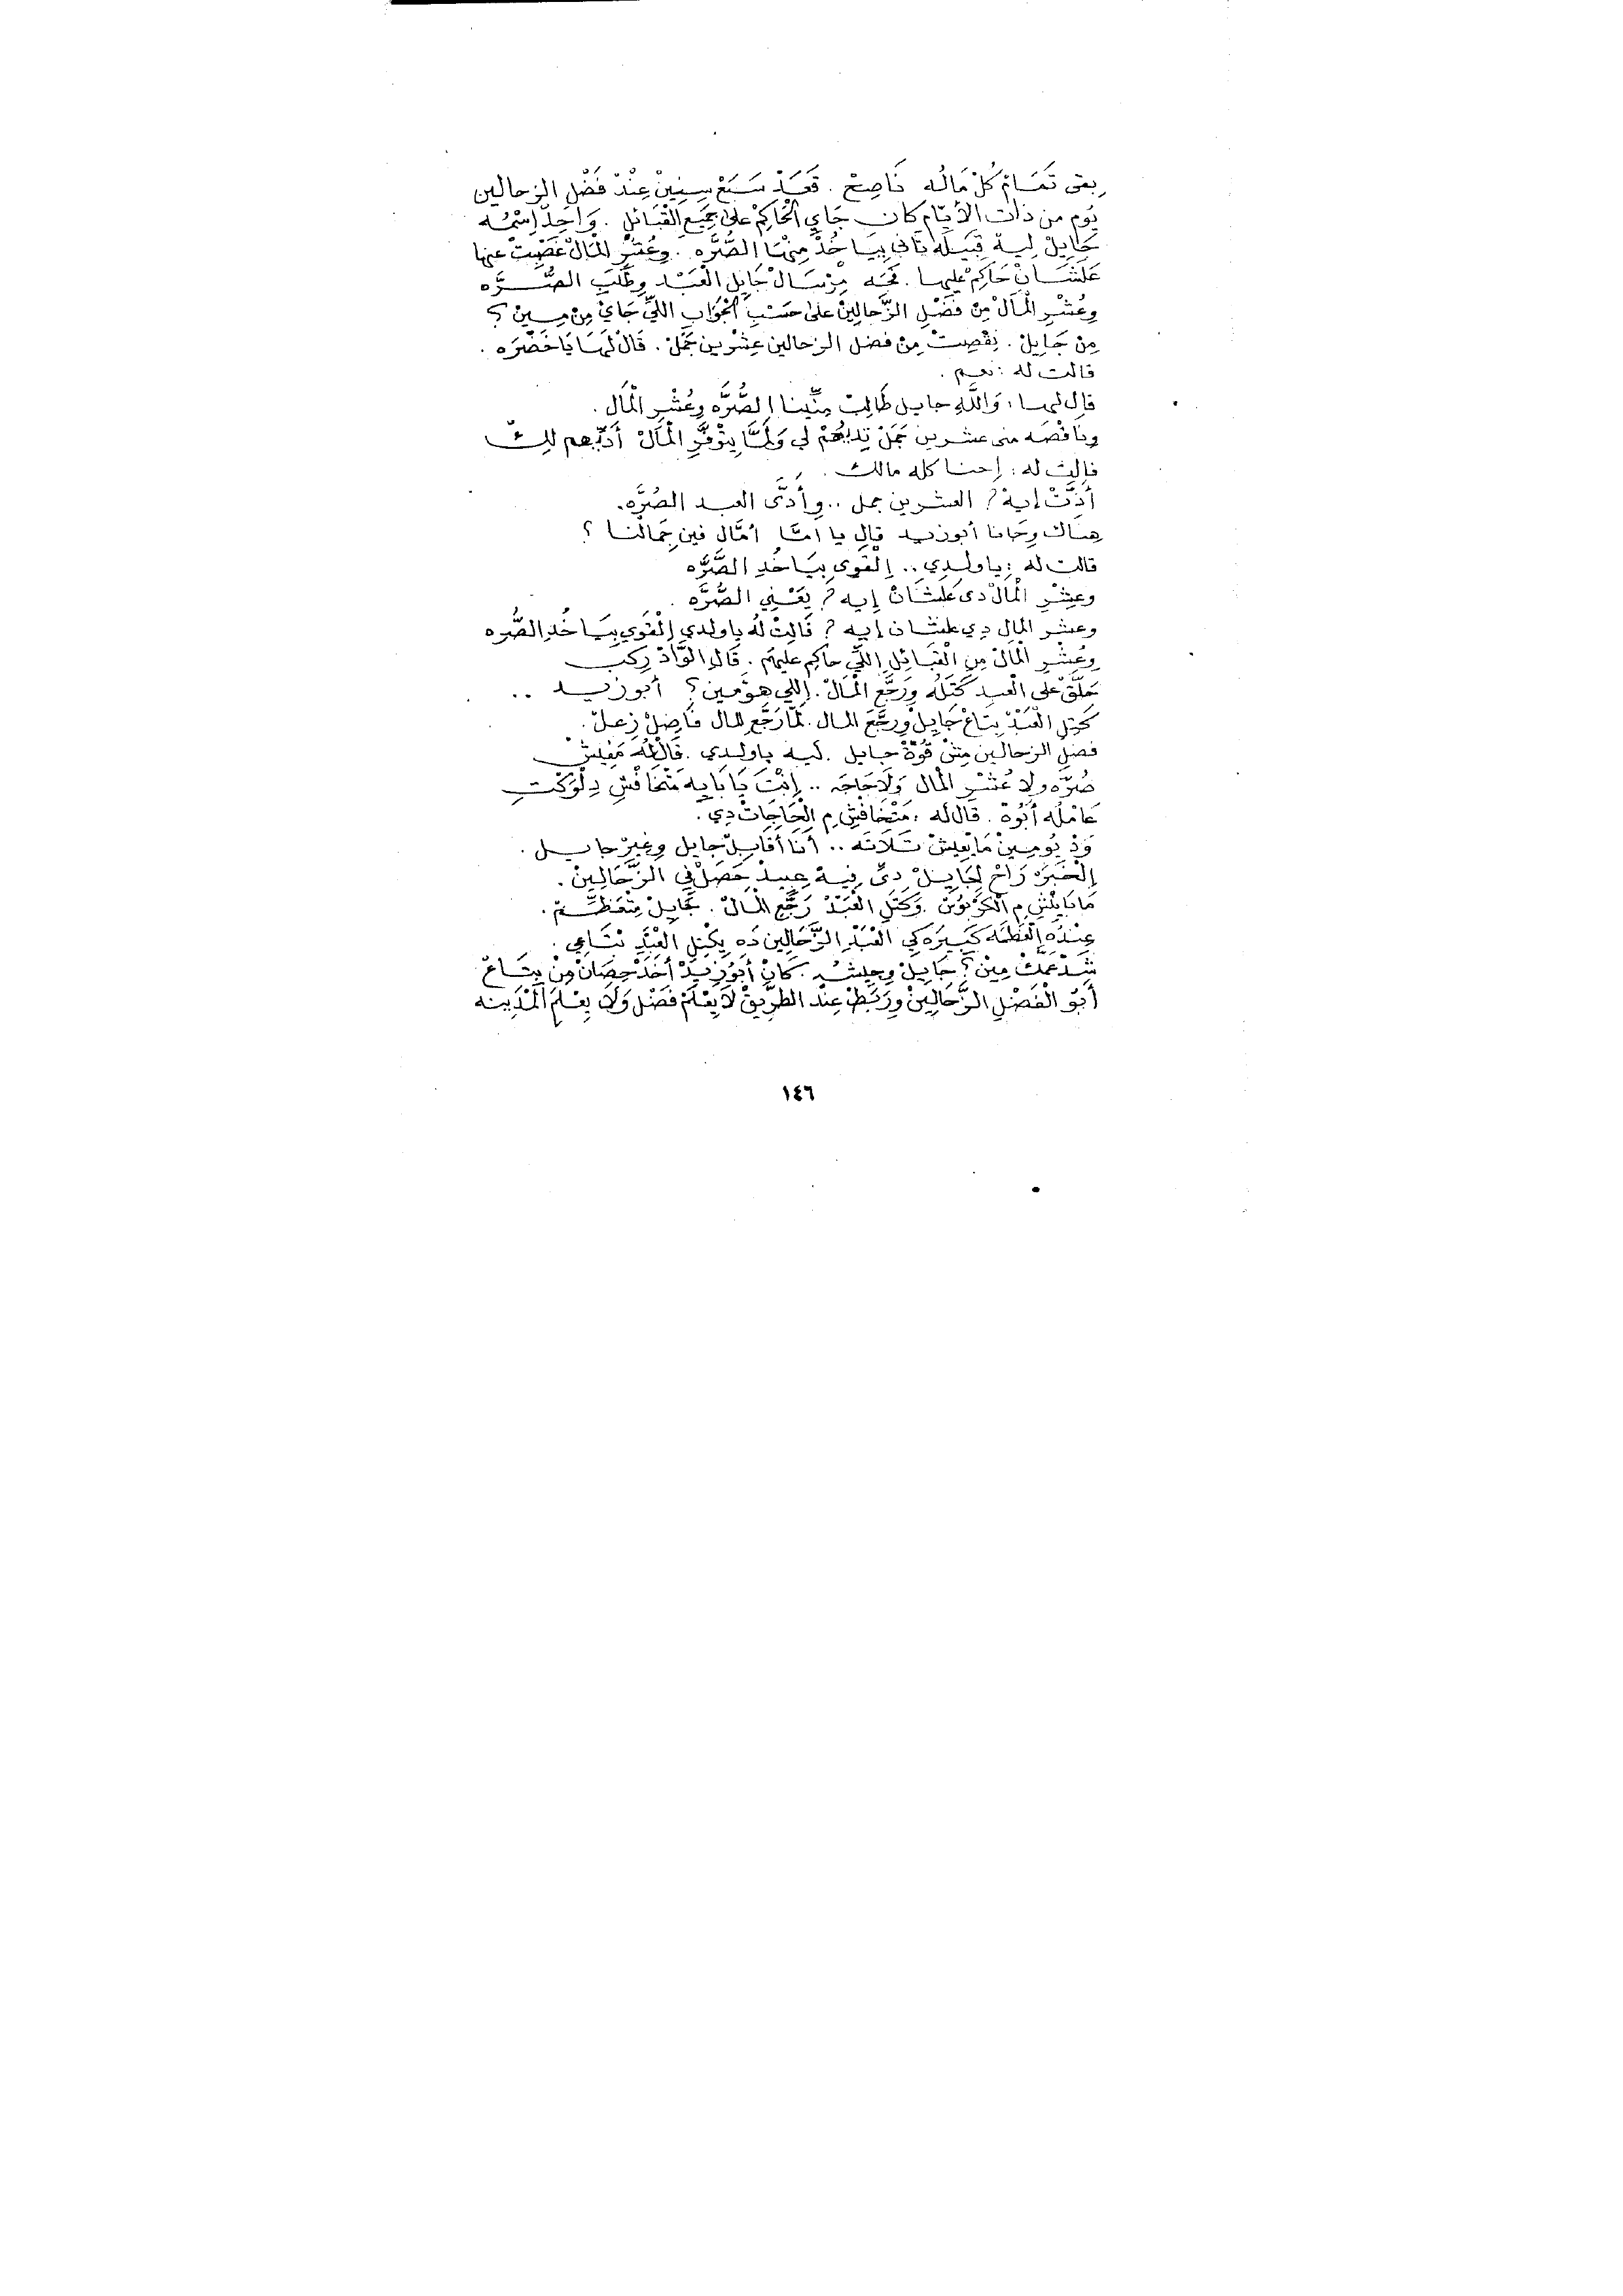 بِقى تَمَامْ كُلْ مَالُه نَاصِحْ . قَعَدْ سَبَعْ سِنِينْ عِنْدْ فَضْلِ الزحالين
يُوم من ذات الأيّام كان جَاىِ الْحَاكِمْ على جَمِيعِ الْقَبَائِلِ . وَاحِدْ اِسْمُه
جَايِلْ لِيهْ قِبَيلَه تَانِى بِيَاخُدْ مِنْهَا الصُّرَّه . وِعُشْرِ الْمَالْ غَصْبِتْ عنها
عَلَشَانْ حَاكِمْ عليها . جَه مِرْسَالْ جَايِلِ الْعَبْد وِطَلَبِ الصُّرَّه
وِعُشْرِ الْمَالْ مِنْ فَضْلِ الزَّحالِينْ على حَسَبِ الْجَوَابِ اللِّي جَاىْ مِنْ مِينْ ؟
مِنْ جَايِلْ . نِقْصِتْ مِنْ فضل الزحالين عِشْرِين جَمَلْ . قَالْ لَهَا يَا خَضْرَه .
قالت له : نعم .
قال لها : وَاللَّهِ جايل طَالِبْ مِنِّينا الصُّرَّه وِعُشْرِ الْمَال .
ونَاقْصَه منى عشرين جَمَلْ تِدِيهُمْ لي وَلَمَّا يِتْوَفَّرِ الْمَالْ أَدِّيهم لِكْ
قالِتْ له : إحنا كله مالك .
أَدِّتْ إيهْ ؟ العشرين جمل .. وِأَدَّى العبد الصُرَّه .
هِناك وِجَانا أبوزيد قال يا امَّا أمَّال فين جِمَالْنا ؟
قالت له : يا ولدي .. إلْقَوِى بِيَاخُدِ الصُّرَّه
وعِشْرِ الْمَالْ دى عَلَشَانْ إيه ؟ يَعْنِي الصُّرَّه .
وعشر المال دِي علشان إيه ؟ قَالِتْ لُه ياولدي إلْقَوِي بِيَاخُدِ الصُّره
وِعُشْرِ الْمَالْ مِنِ الْقَبَائِلِ اِللِّي حاكم عليهُم . قَالِ الْوَادْ رِكِب
حَلَّقْ على الْعبد كَتَلُه وِرَجَّعِ الْمَالْ . إللي هوَّ مين ؟ أبوزيد ..
كَتَلِ الْعَبْدْ بِتَاعْ جَايِلْ وِرجَّعِ المال . لَمَّا رَجَّعِ المال فَاضِلْ زِعِلْ .
فضل الزحالين مِنْ قُوّةْ جايل . ليه ياولدي . قَالْ لُه مَفِيشْ
صُرَّه ولا عُشْرِ المال وَلَا حَاجَه .. إنْتَ يَا بَايَه مَتْخَافْشِ دِلْوَكْتِ
عَامْلُه أَبُوهْ . قال له : مَتْخَافْشِ مِ الْحَاجَاتْ دِي .
وَدْ يُومِينْ مَا يْعِيشْ تَلَاتَه .. أَنَا أَقَابِلْ جايل وِغِيرْ جايل .
إِلْخَبَرْ رَاحْ لِجَايِلْ دِىْ فِيهْ عَبِيدْ حَصَلْ فِي الزَّحَالِينْ .
وَكَتَلِ الْعَبْدْ رَجَّعِ الْمَالْ . جَايِلْ مِتْعَظَّمْ .
عِنْدُه إلْعَظَمَه كَبِيرَه كِي الْعَبْدِ الزَّحَالِين دَه يِكْتِلِ الْعَبْدِ بْتَاعِي .
شِدْ عَمَّكْ مِينْ ؟ جَايِلْ وِجيشُه . كَانْ أَبُوزِيدْ أَخَدْ حِصَانْ مِنْ بِتَاعْ
أَبُو الْفَضْلِ الزَّحَالِينْ وِرَبَطْ عِنْد الطَّرِيقْ لَا يِعْلَمْ فَضْل وَلَا يِعْلَم الْمَدِينه
١٤٦